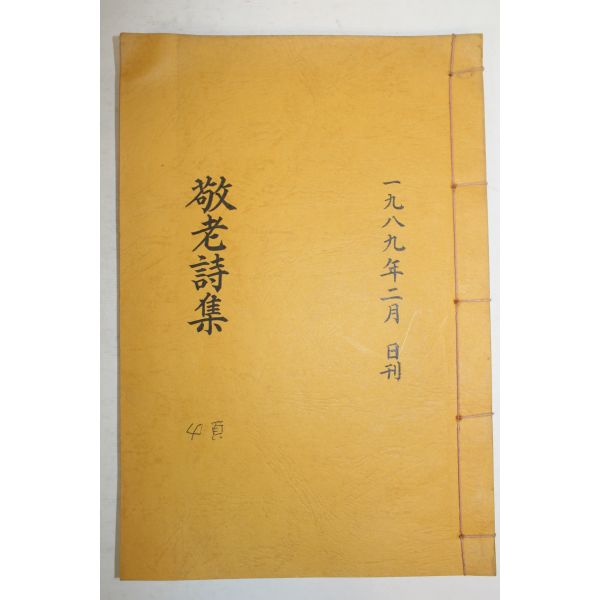 一九八九年二月 日刊
敬老詩集
4頁